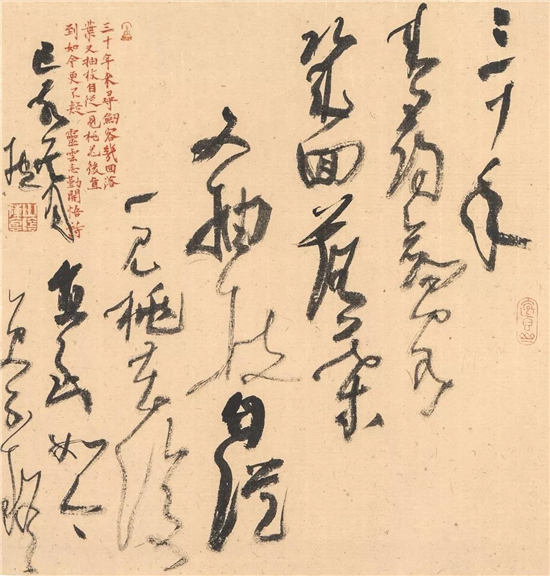 三十年
来寻剑客
几回落叶
又抽枝自从
一见桃花后
直至如今
更不疑
三十年来寻劍客幾回落
葉又抽枝自從一見桃花後直
到如今更不疑 靈雲志勤開悟詩